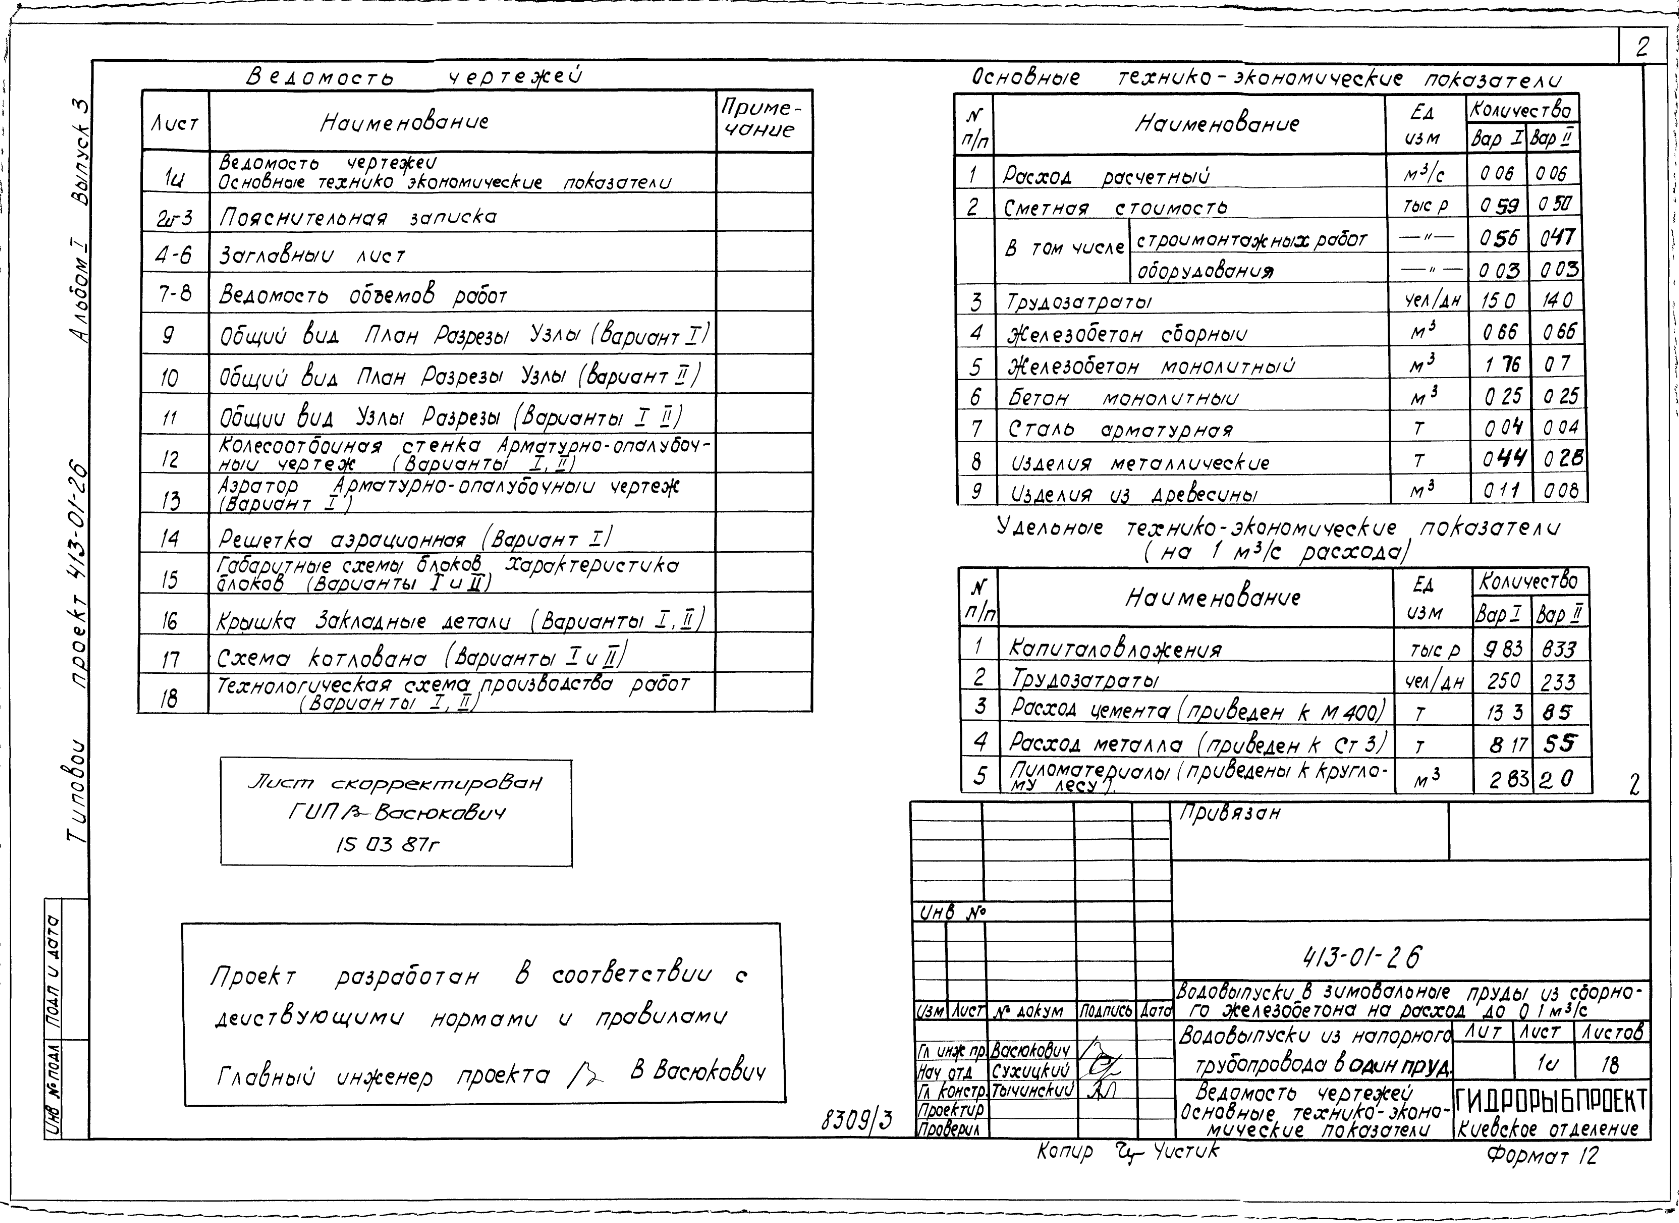 2
Ведомость чертежей
Лист Наименование Примечание
1и Ведомость чертежей
Основные технико экономические показатели
2и-3 Пояснительная записка
4-6 Заглавный лист
7-8 Ведомость объемов работ
9 Общий вид План Разрезы Узлы (вариант I)
10 Общий вид План Разрезы Узлы (вариант II)
11 Общий вид Узлы Разрезы (Варианты I II)
12 Колесоотбойная стенка Арматурно-опалубоч-
ный чертеж (Варианты I, II)
13 Аэратор Арматурно-опалубочный чертеж
(Вариант I)
14 Решетка аэрационная (Вариант I)
15 Габаритные схемы блоков Характеристика
блоков (Варианты I и II)
16 Крышка Закладные детали (Варианты I, II)
17 Схема котлована (Варианты I и II)
18 Технологическая схема производства работ
(Варианты I, II)
Лист скорректирован
ГИП Васюкович
15 03 87г
Проект разработан в соответствии с
действующими нормами и правилами
Главный инженер проекта В Васюкович
Типовой проект 413-01-26 Альбом I Выпуск 3
Инв № подл Подп и дата
Основные технико-экономические показатели
N п/п Наименование Ед изм Количество
Вар I Вар II
1 Расход расчетный м³/с 0 06 0 06
2 Сметная стоимость тыс р 0 59 0 50
В том числе строймонтажных работ —"— 0 56 0 47
оборудования —"— 0 03 0 03
3 Трудозатраты чел/дн 15 0 14 0
4 Железобетон сборный м³ 0 66 0 66
5 Железобетон монолитный м³ 1 76 0 7
6 Бетон монолитный м³ 0 25 0 25
7 Сталь арматурная т 0 04 0 04
8 Изделия металлические т 0 44 0 28
9 Изделия из древесины м³ 0 11 0 08
Удельные технико-экономические показатели
(на 1 м³/с расхода)
N п/п Наименование Ед изм Количество
Вар I Вар II
1 Капиталовложения тыс р 9 83 8 33
2 Трудозатраты чел/дн 250 233
3 Расход цемента (приведен к М 400) т 13 3 8 5
4 Расход металла (приведен к Ст 3) т 8 17 5 5
5 Пиломатериалы (приведены к кругло-
му лесу). м³ 2 83 2 0
2
Привязан
Инв №
413-01-26
Водовыпуски в зимовальные пруды из сборно-
го железобетона на расход до 0 1 м³/с
Изм Лист № докум Подпись Дата
Водовыпуски из напорного
трубопровода в один пруд.
Лит Лист Листов
1и 18
Гл инж пр. Васюкович
Нач отд Сухицкий
Гл констр. Тычинский
Проектир
Проверил
Ведомость чертежей
Основные технико-эконо-
мические показатели
ГИДРОРЫБПРОЕКТ
Киевское отделение
8309/3
Копир Чистик
Формат 12